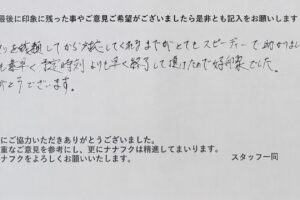 最後に印象に残った事やご意見ご希望がございましたら是非とも記入をお願いします
を依頼してから対応してくれるまでがとてもスピーディーで助かりました
も素早く、予定時刻よりも早く終了して頂けたので好印象でした。
がとうございます。
にご協力いただきありがとうございました。
重なご意見を参考にし、更にナナフクは精進してまいります。
ナフクをよろしくお願いいたします。
スタッフ一同